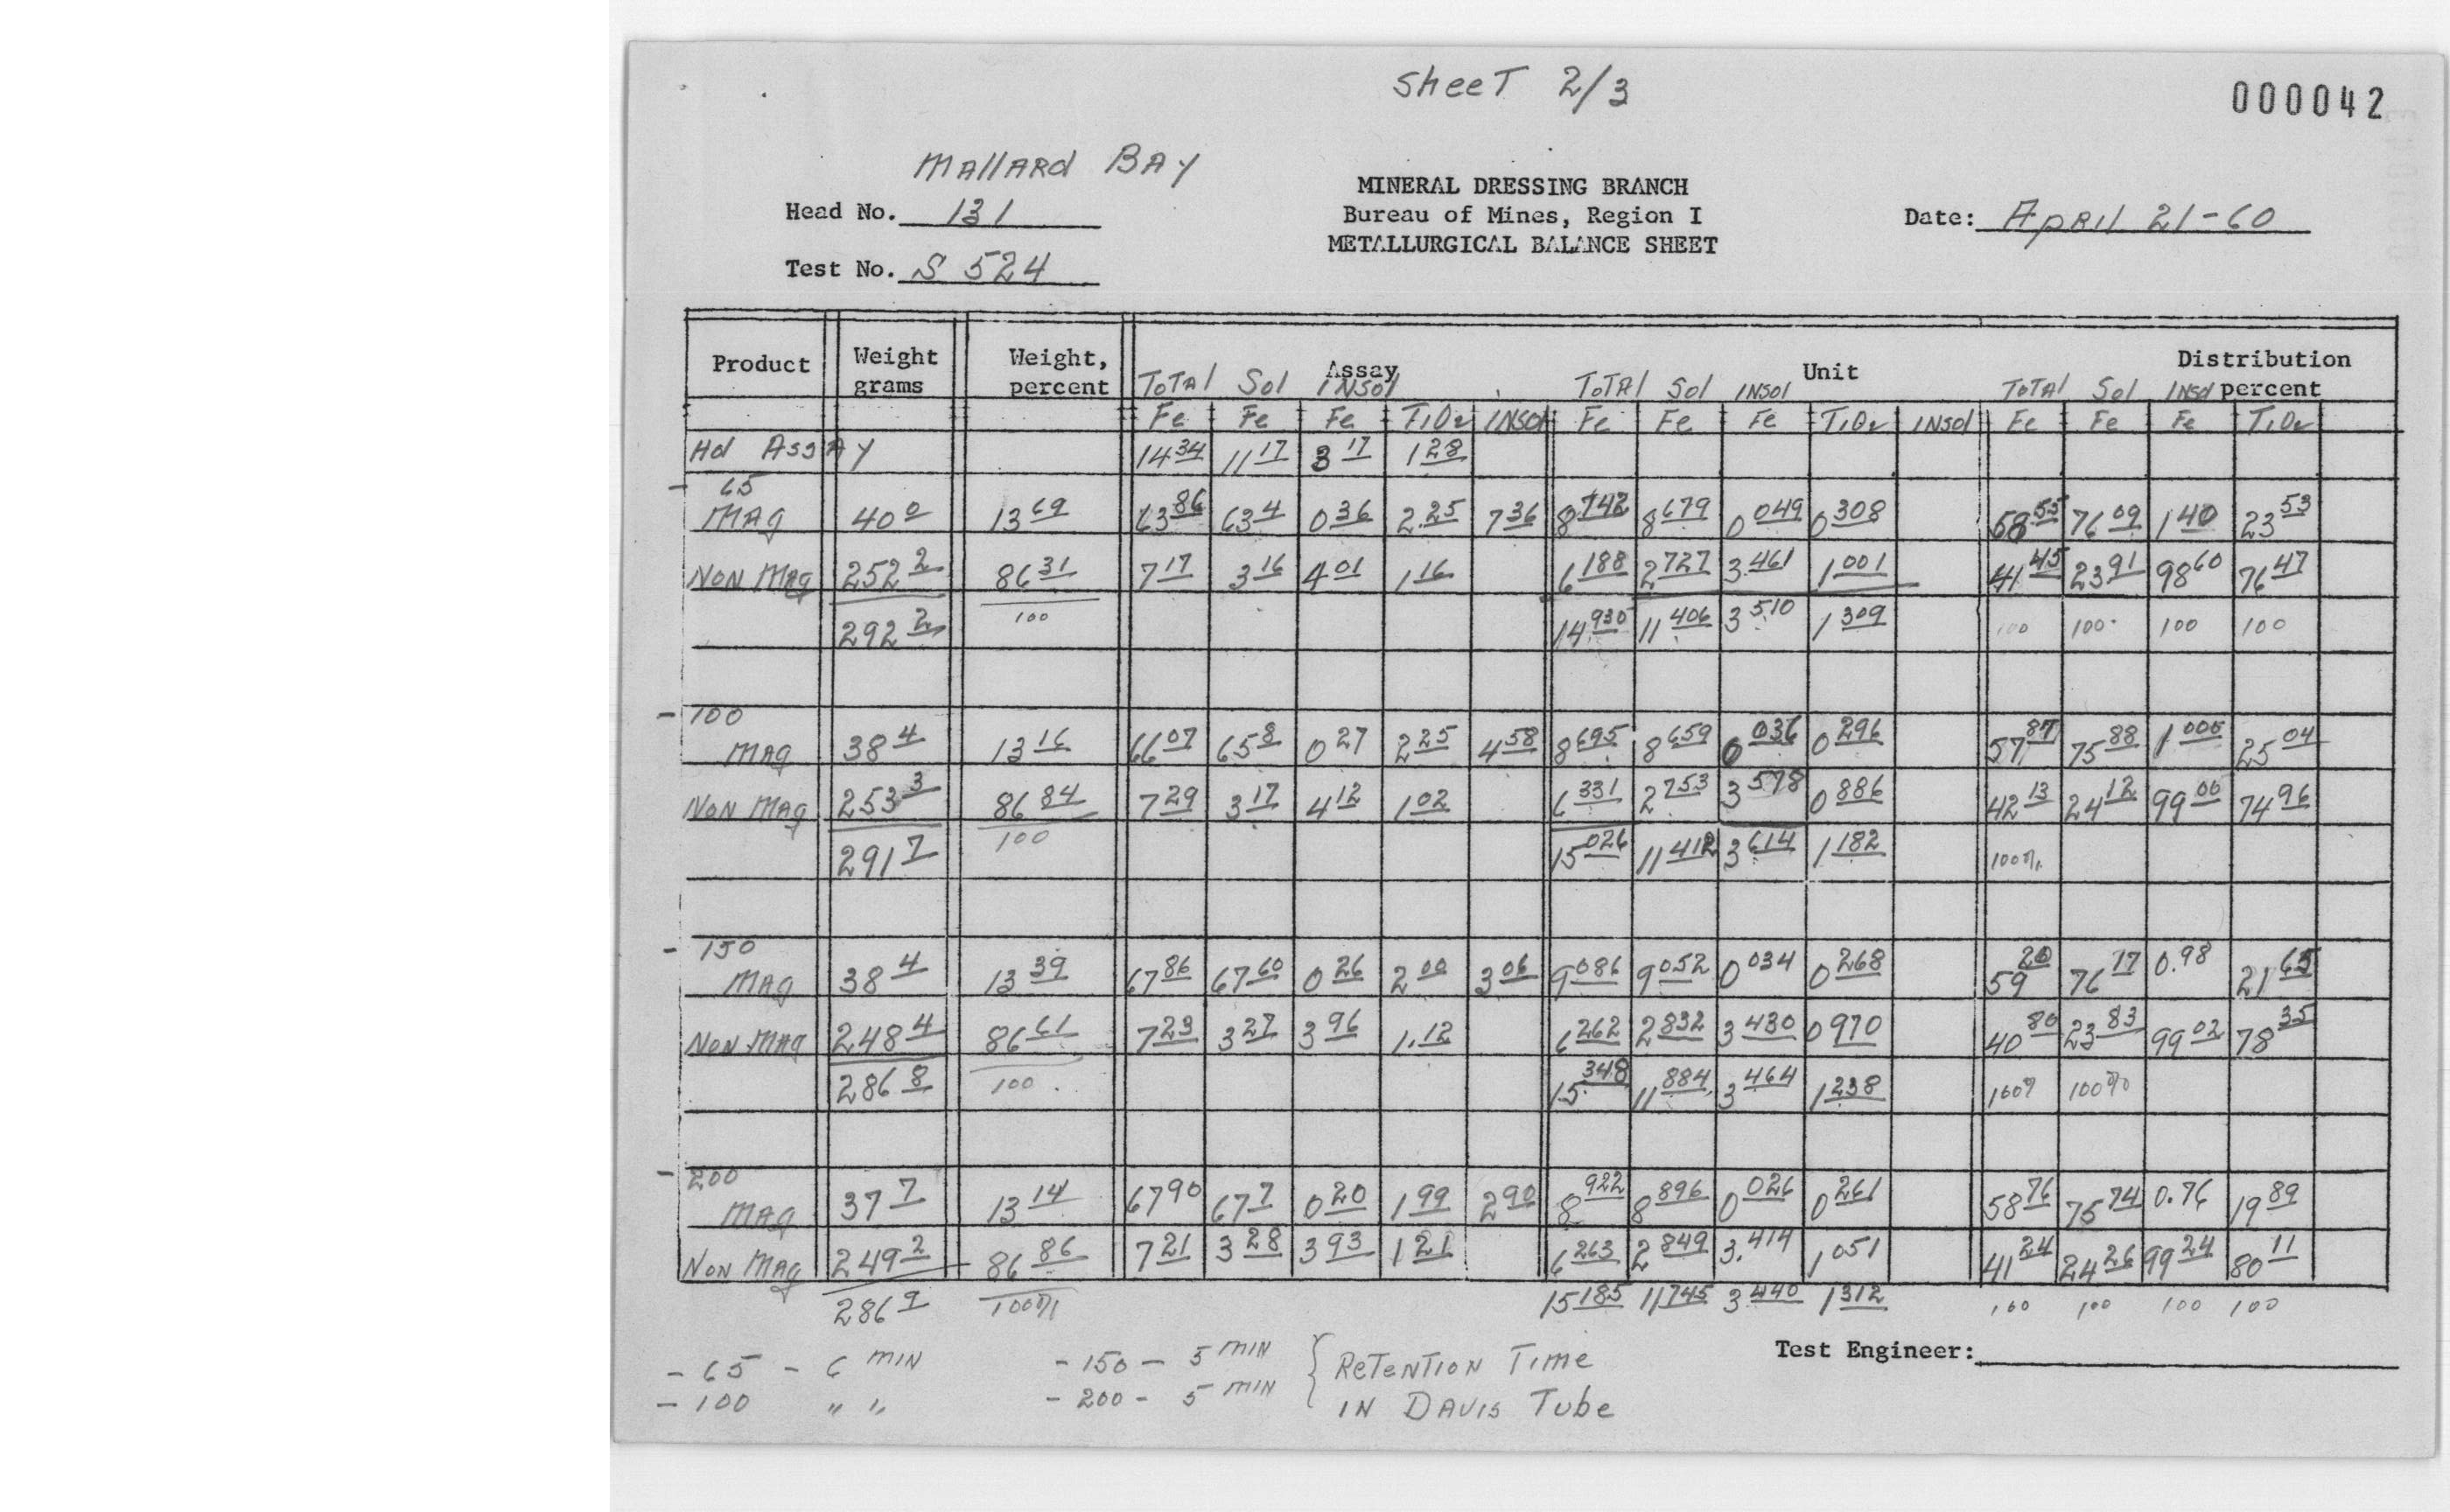 Sheet 2/3
000042
Mallard Bay
MINERAL DRESSING BRANCH
Head No. 131 Bureau of Mines, Region I Date: April 21-60
METALLURGICAL BALANCE SHEET
Test No. S 524
Product Weight grams Weight, percent Assay Unit Distribution percent
Total Sol Insol Total Sol Insol Total Sol Insol
Fe Fe Fe TiO2 Insol Fe Fe Fe TiO2 Insol Fe Fe Fe TiO2
Hd Assay 14 34 11 17 3 17 1 28
- 65
Mag 40 0 13 69 63 86 63 4 0 36 2.25 7 36 8 742 8 679 0 049 0 308 58 55 76 09 1 40 23 53
Non Mag 252 2 86 31 7 17 3 16 4 01 1 16 6 188 2 727 3.461 1 001 41 45 23 91 98 60 76 47
292 2 100 14 930 11 406 3 510 1 309 100 100 100 100
- 100
Mag 38 4 13 16 66 07 65 8 0 27 2 25 4 58 8 695 8 659 0 036 0 296 57 87 75 88 1 000 25 04
Non Mag 253 3 86 84 7 29 3 17 4 12 1 02 6 331 2 753 3 578 0 886 42 13 24 12 99 00 74 96
291 7 100 15 026 11 412 3 614 1 182 100%
- 150
Mag 38 4 13 39 67 86 67 60 0 26 2 00 3 06 9 086 9 052 0 034 0 268 59 20 76 17 0.98 21 65
Non Mag 248 4 86 61 7 23 3 27 3 96 1.12 6 262 2 832 3 430 0 970 40 80 23 83 99 02 78 35
286 8 100 15 348 11 884 3 464 1 238 100% 100%
- 200
Mag 37 7 13 14 67 90 67 7 0 20 1 99 2 90 8 922 8 896 0 026 0 261 58 76 75 74 0.76 19 89
Non Mag 249 2 86 86 7 21 3 28 3 93 1 21 6 263 2 849 3.414 1 051 41 24 24 26 99 24 80 11
286 9 100% 15 185 11 745 3 440 1 312 100 100 100 100
Test Engineer:
- 65 - 6 min - 150 - 5 min { Retention Time
- 100 " " - 200 - 5 min in Davis Tube